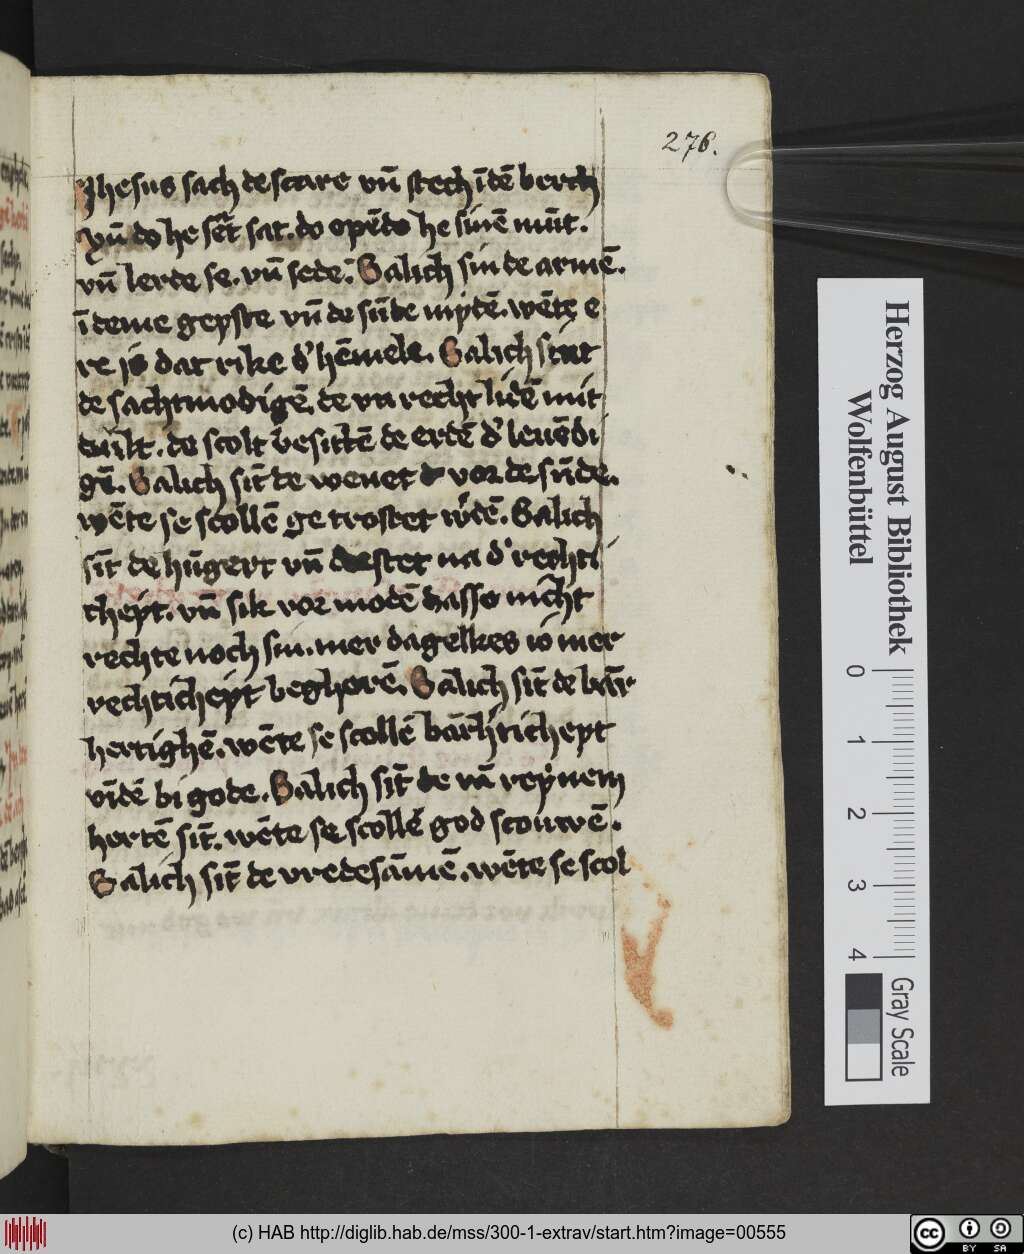 276.
Jhesus sach de scare vn̄ stech ī dē berch
vn̄ do he sēt sat. do opēde he sinē mūt.
vn̄ lerde se. vn̄ sede. Salich sin de armē.
ī deme geyste vn̄ de sūde mydē. wēte e
re is dat rike d' hēmels. Salich sint
de sachtmodigē. de vn recht lidē mit
dult. de scolt besittē de erdē d' leuēdi
gē. Salich sīt de wenet vor de sūde.
wēte se scollē ge trostet w'dē. Salich
sīt de hūgert vn̄ dorstet na d' rechti
cheyt. vn̄ sik vor modē dasse nicht
rechte noch sin. mer dagelkes io mer
recht icheyt begherē. Sālich sīt de bār
hertighē. wēte se scollē bārhrticheyt
vīdē bi gode. Sālich sīt de vā reynem
hertē sīt. wēte se scollē god scouwē.
Sālich sīt de vredesāmē. wēte se scol
Herzog August Bibliothek
Wolfenbüttel
0 1 2 3 4
Gray Scale
(c) HAB http://diglib.hab.de/mss/300-1-extrav/start.htm?image=00555
cc
BY SA